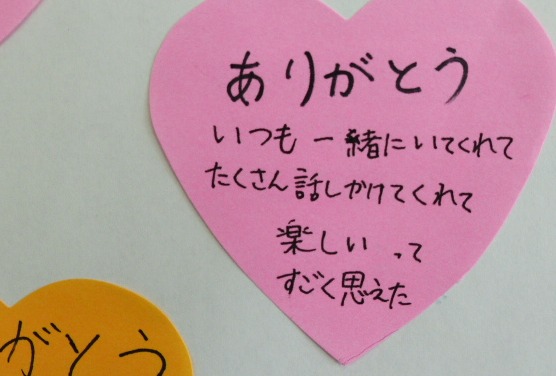 ありがとう
いつも一緒にいてくれて
たくさん話しかけてくれて
楽しいって
すごく思えた
がとう